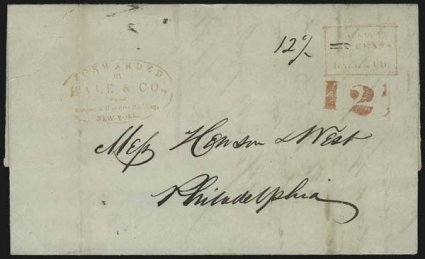 FORWARDED
BY
HALE & CO.
FROM
NEW-YORK.
12½
HALE & CO.
12½
Mess Henson & West
Philadelphia